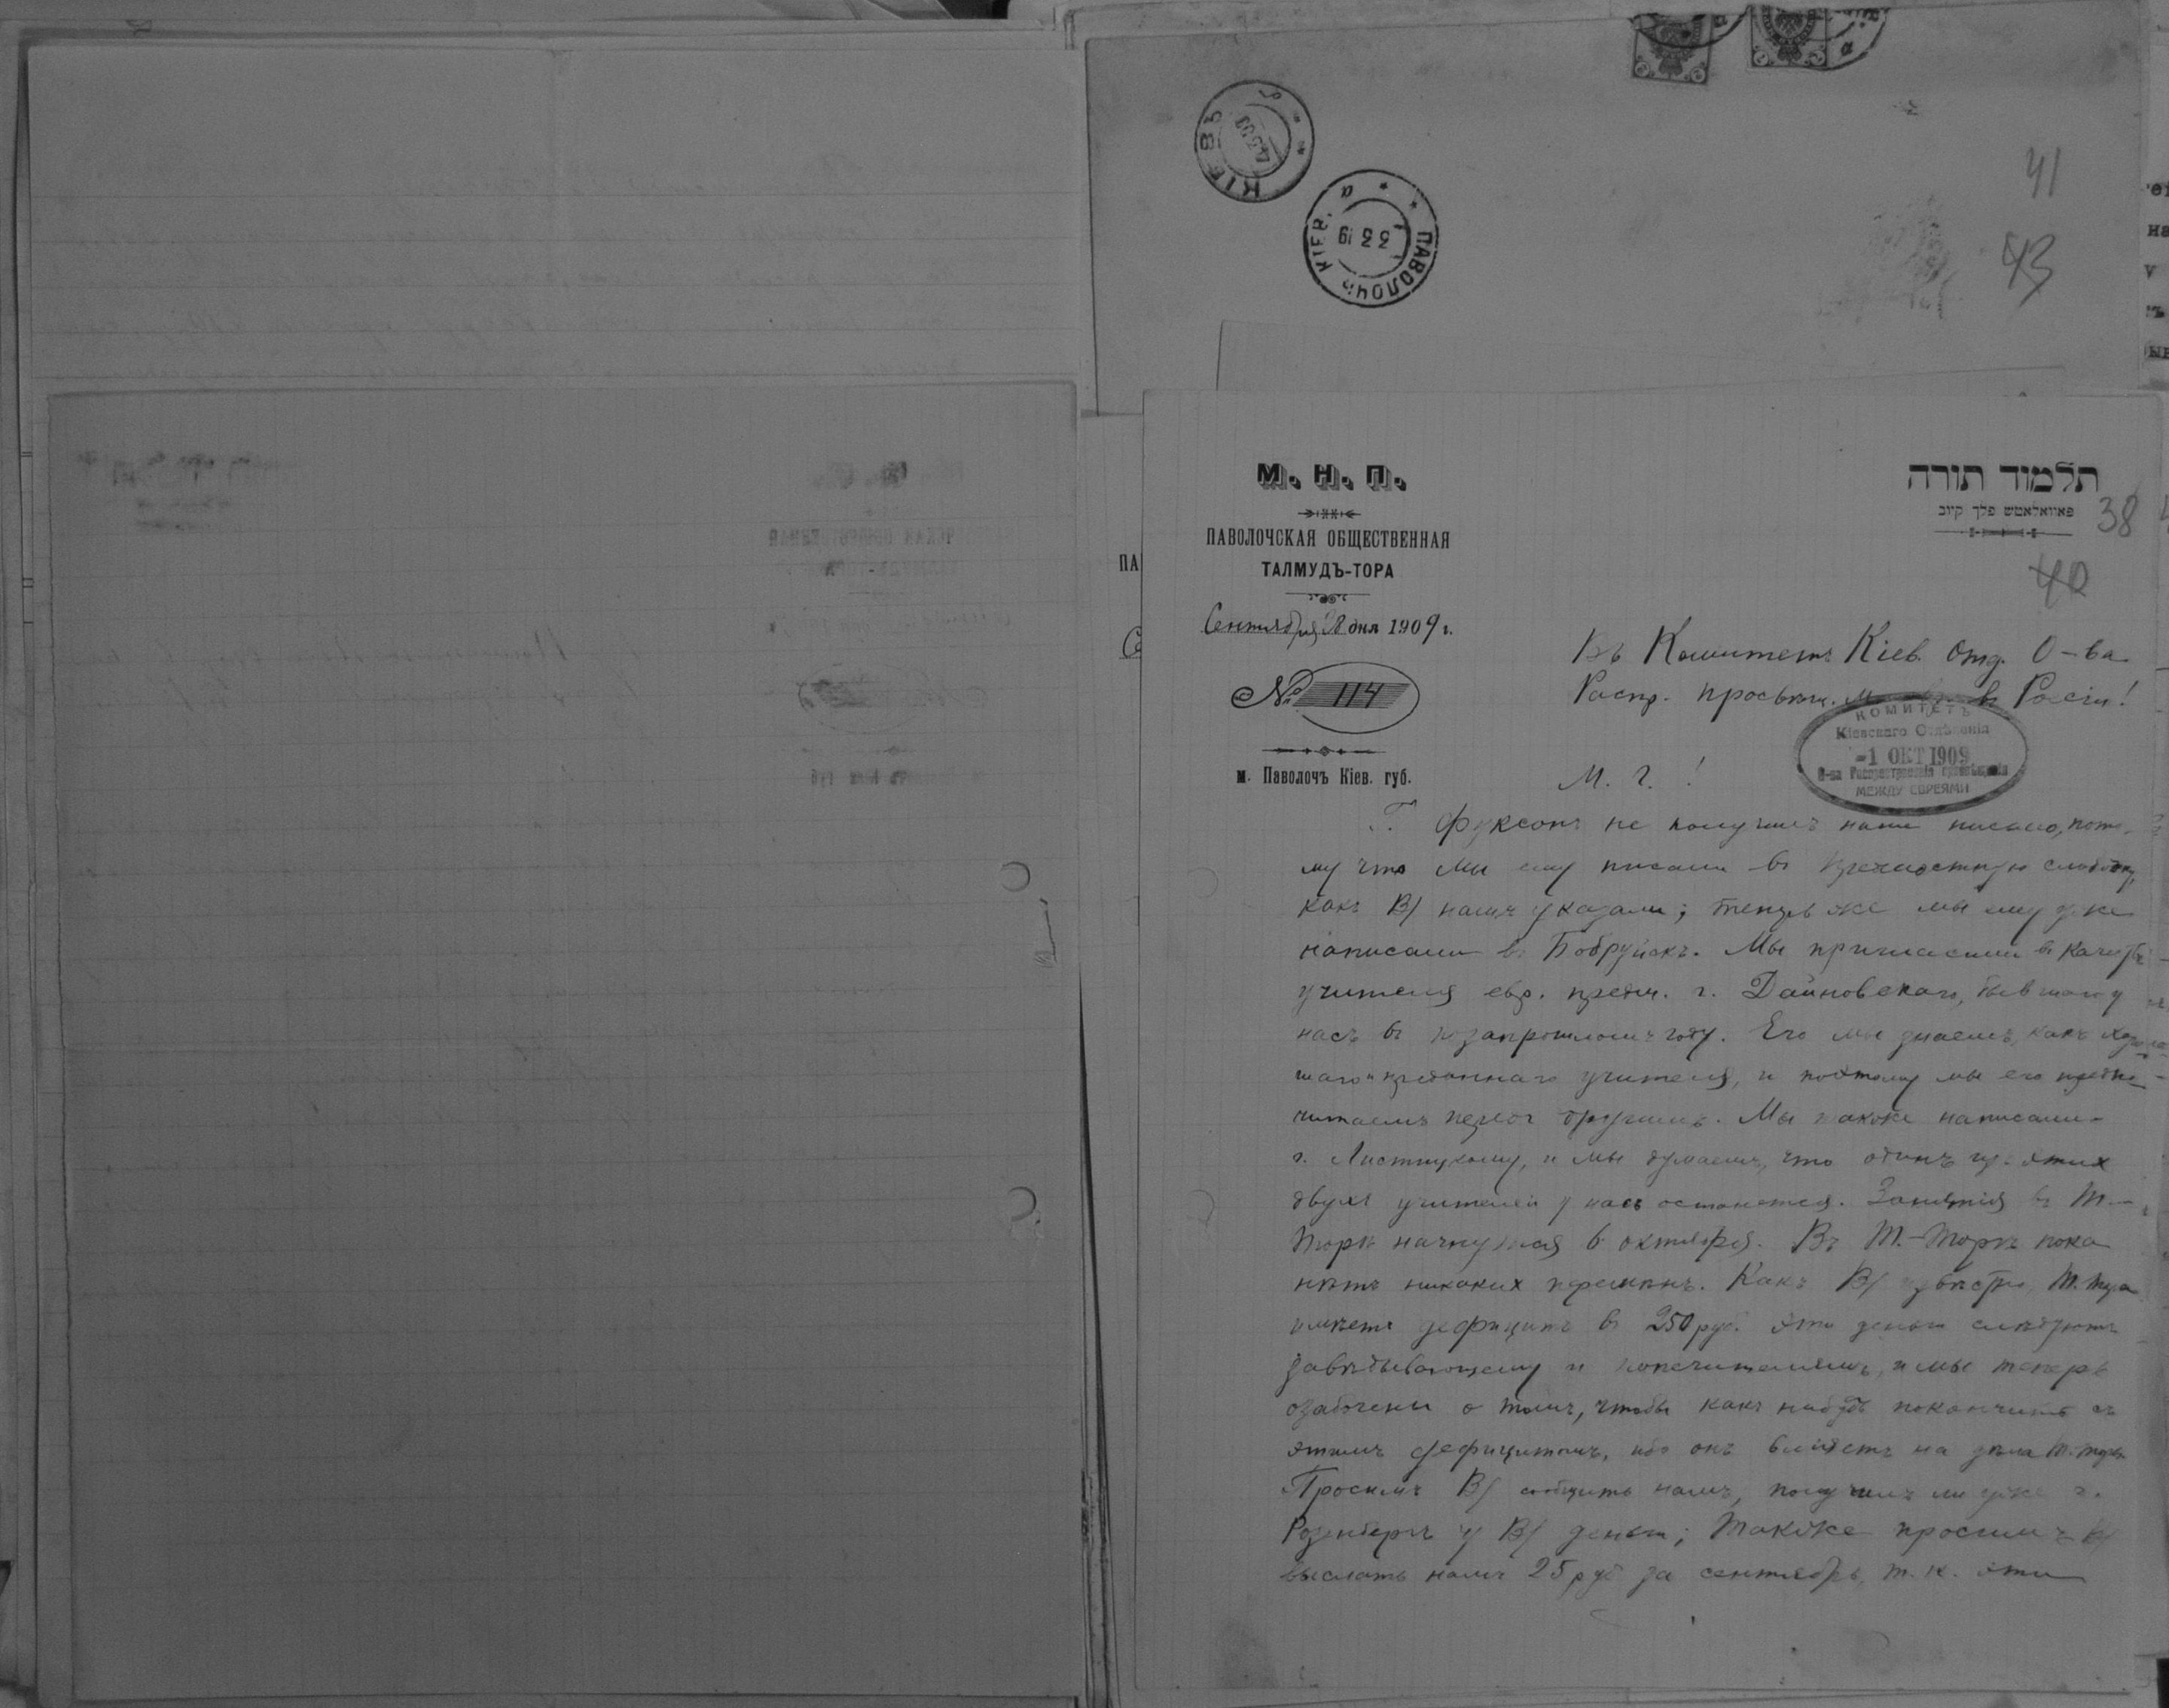 КІЕВЪ
ПАВОЛОЧЬ КІЕВ. а
41
43
М. Н. П.
ПАВОЛОЧСКАЯ ОБЩЕСТВЕННАЯ
ТАЛМУДЪ-ТОРА
Сентября 28 дня 1909 г.
№ 114
м. Паволочъ Кіев. губ.
תלמוד תורה
פאוואלאטש פלך קיוב
38
40
Въ Комитетъ Кіев. отд. О-ва
Распр. просвѣщ. въ Россіи!
КОМИТЕТЪ
Кіевскаго Отдѣленія
-1 ОКТ 1909
О-ва Распространенія просвѣщенія
МЕЖДУ ЕВРЕЯМИ
М. Г. !
Г. Фуксонъ не получилъ наше письмо, пото-
му что мы ему писали въ слободку,
какъ В/ намъ указали; теперь же мы ему уже
написали въ Бобруйскъ. Мы пригласили въ
учителя евр. предм. г. Дайновскаго, бывшаго у
насъ въ позапрошломъ году. Его мы знаемъ, какъ
шаго и преданнаго учителя, и поэтому мы его предпо-
читаемъ передъ другими. Мы также написали
г. Листницкому, и мы думаемъ, что одинъ изъ этихъ
двухъ учителей у насъ останется. Занятія въ Т.-
Торѣ начнутся 6 октября. Въ Т.-Торѣ пока
нѣтъ никакихъ перемѣнъ. Какъ В/ извѣстно, Т. Тора
имѣетъ дефицитъ въ 250 руб. Эти деньги слѣдуютъ
завѣдывающему и попечителямъ, и мы теперь
озабочены о томъ, чтобы какъ нибудь покончить съ
этимъ дефицитомъ, ибо онъ вліяетъ на дѣла Т. Торы
Просимъ В/ сообщить намъ, получилъ ли уже г.
Розенбергъ у В/ деньги; также просимъ В/
выслать намъ 25 руб за сентябрь, т. к. эти